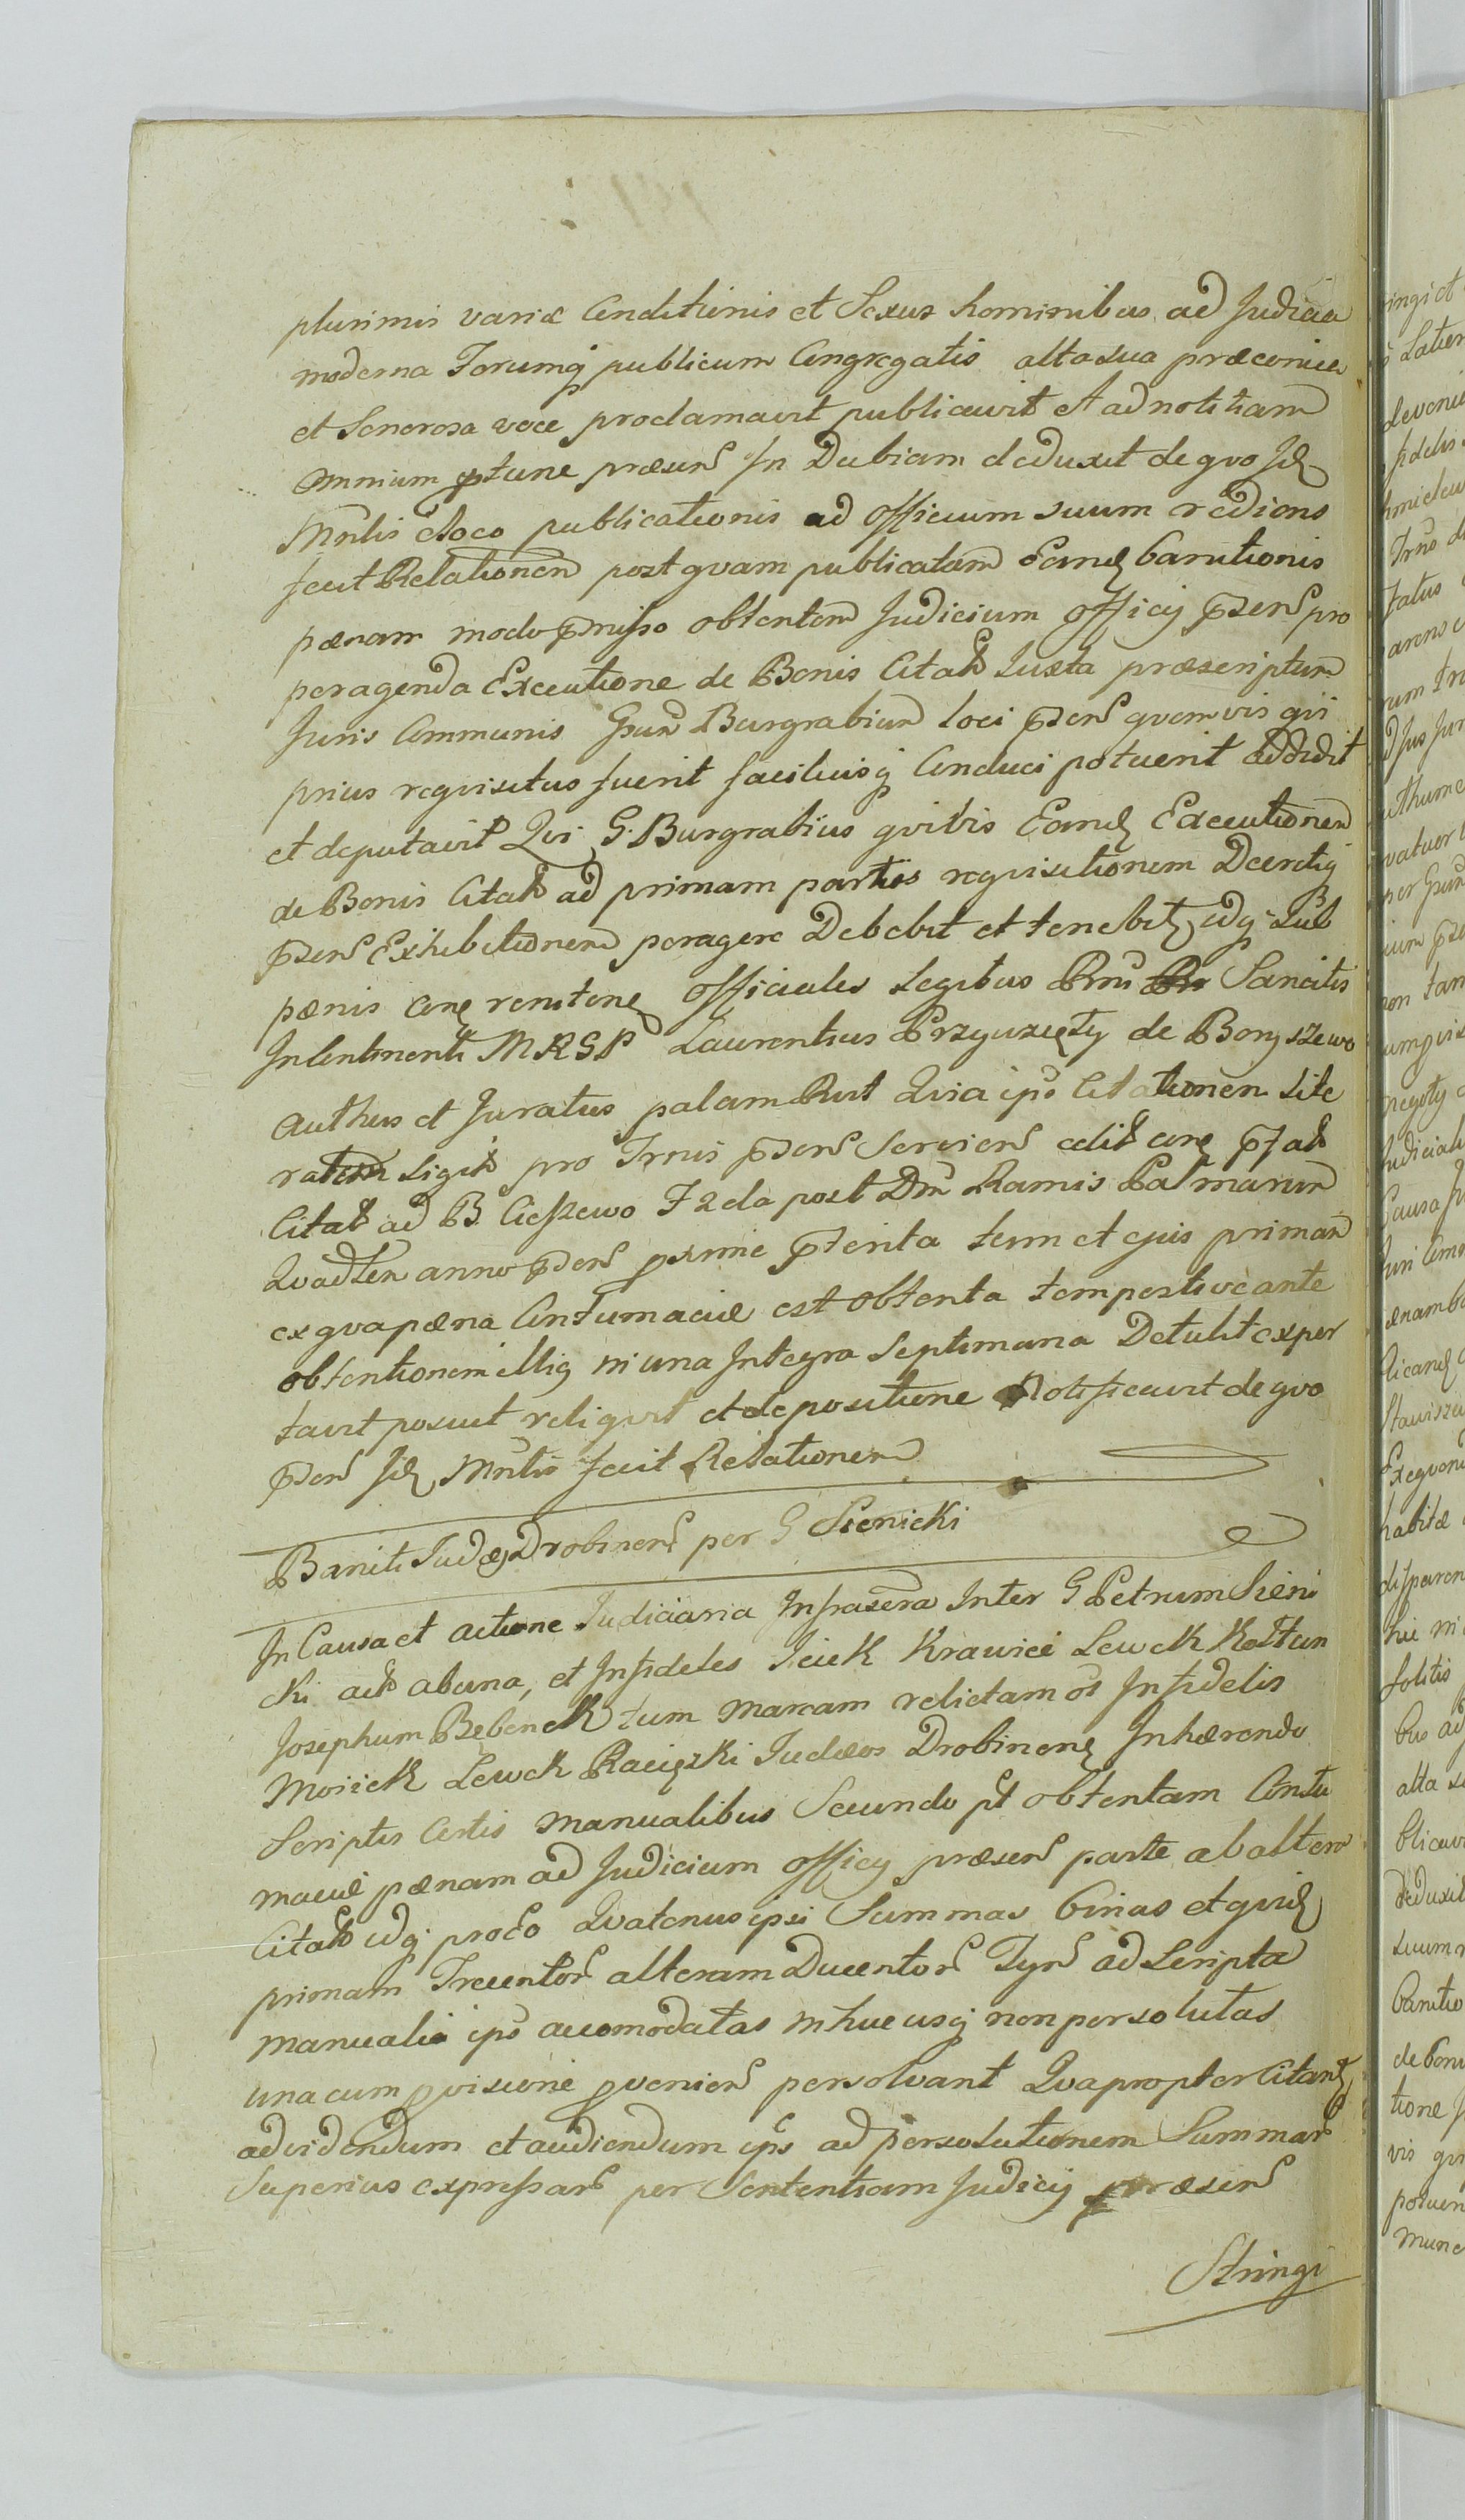 plurimis variæ Conditionis et Sexus hominibus ad Judicia
moderna Forumq publicum Congregatis alta sua præconica
et Sonorosa voce proclamavit publicavit et ad notitiam
omnium ptunc præsen In Dubiam deduxit de quo Id
Mntlis eloco publicationis ad officium suum rediens
fecit Relationem post quam publicatam Eand banitionis
pænam modo pmisso obtentam Judicium officij psen pro
peragenda Executione de Bonis Citat Iuxta præscriptum
Juris Communis Gsum Burgrabium loci psen quemvis qui
prius requisitus fuerit faciliusq Conduci potuerit addidit
et deputavit Qui G. Burgrabius quivis Eand Executionem
de Bonis Citat ad primam partis requisitionem Decretiq
psen Exhibitionem peragere Debebit et tenebit idq sub
pænis cont reniten Officiales Legibus Rni Sancitis
In Continenti MRSP Laurentius Przyuzęty de Boryszewo
Authen et Juratus palam Rvit Quia ips Citationem lite
ratem sigil pro Trnis psen Servien edit con pfat
Citat ad B. Cieszewo F 2da post Dm Ramis Palmarum
Quadlen anno psen proxime pterita tem et ejus primam
ex qua pæna Contumaciæ est obtenta tempestive ante
obtentionem illig in una Integra Septimana Detulit expor
tavit posuit reliquit et depositione Notificavit de quo
psen Id Mntlis fecit Relationem
Baniti Judæi Drobinen per G Sienicki
In Causa et actione Judiciaria Infrascra Inter G Petrum Sieni
cki act ab una, et Infideles Iciek Krawiec Lewek Kołtun
Josephum Bebenek tum Marcam relictam os Infidelis
Moszek Lewek Raciązki Judæos Drobinen Inhærendo
Scriptis Certis manualibus Secundo pt obtentam Contu
maciæ pænam ad Judicium officij præsen parte ab altera
Citat idq proeo Quatenus ipsi Summas binas et quid
primam Trecentor alteram Ducentor Tyn ad Scripta
manualia ips accomodatas in huc usq non persolutas
una cum provisione provenien persolvant Quapropter Citant
ad videndum et audiendum ips ad persolutionem Summar
Superius expressar per Sententiam Judicij præsen
Stringi